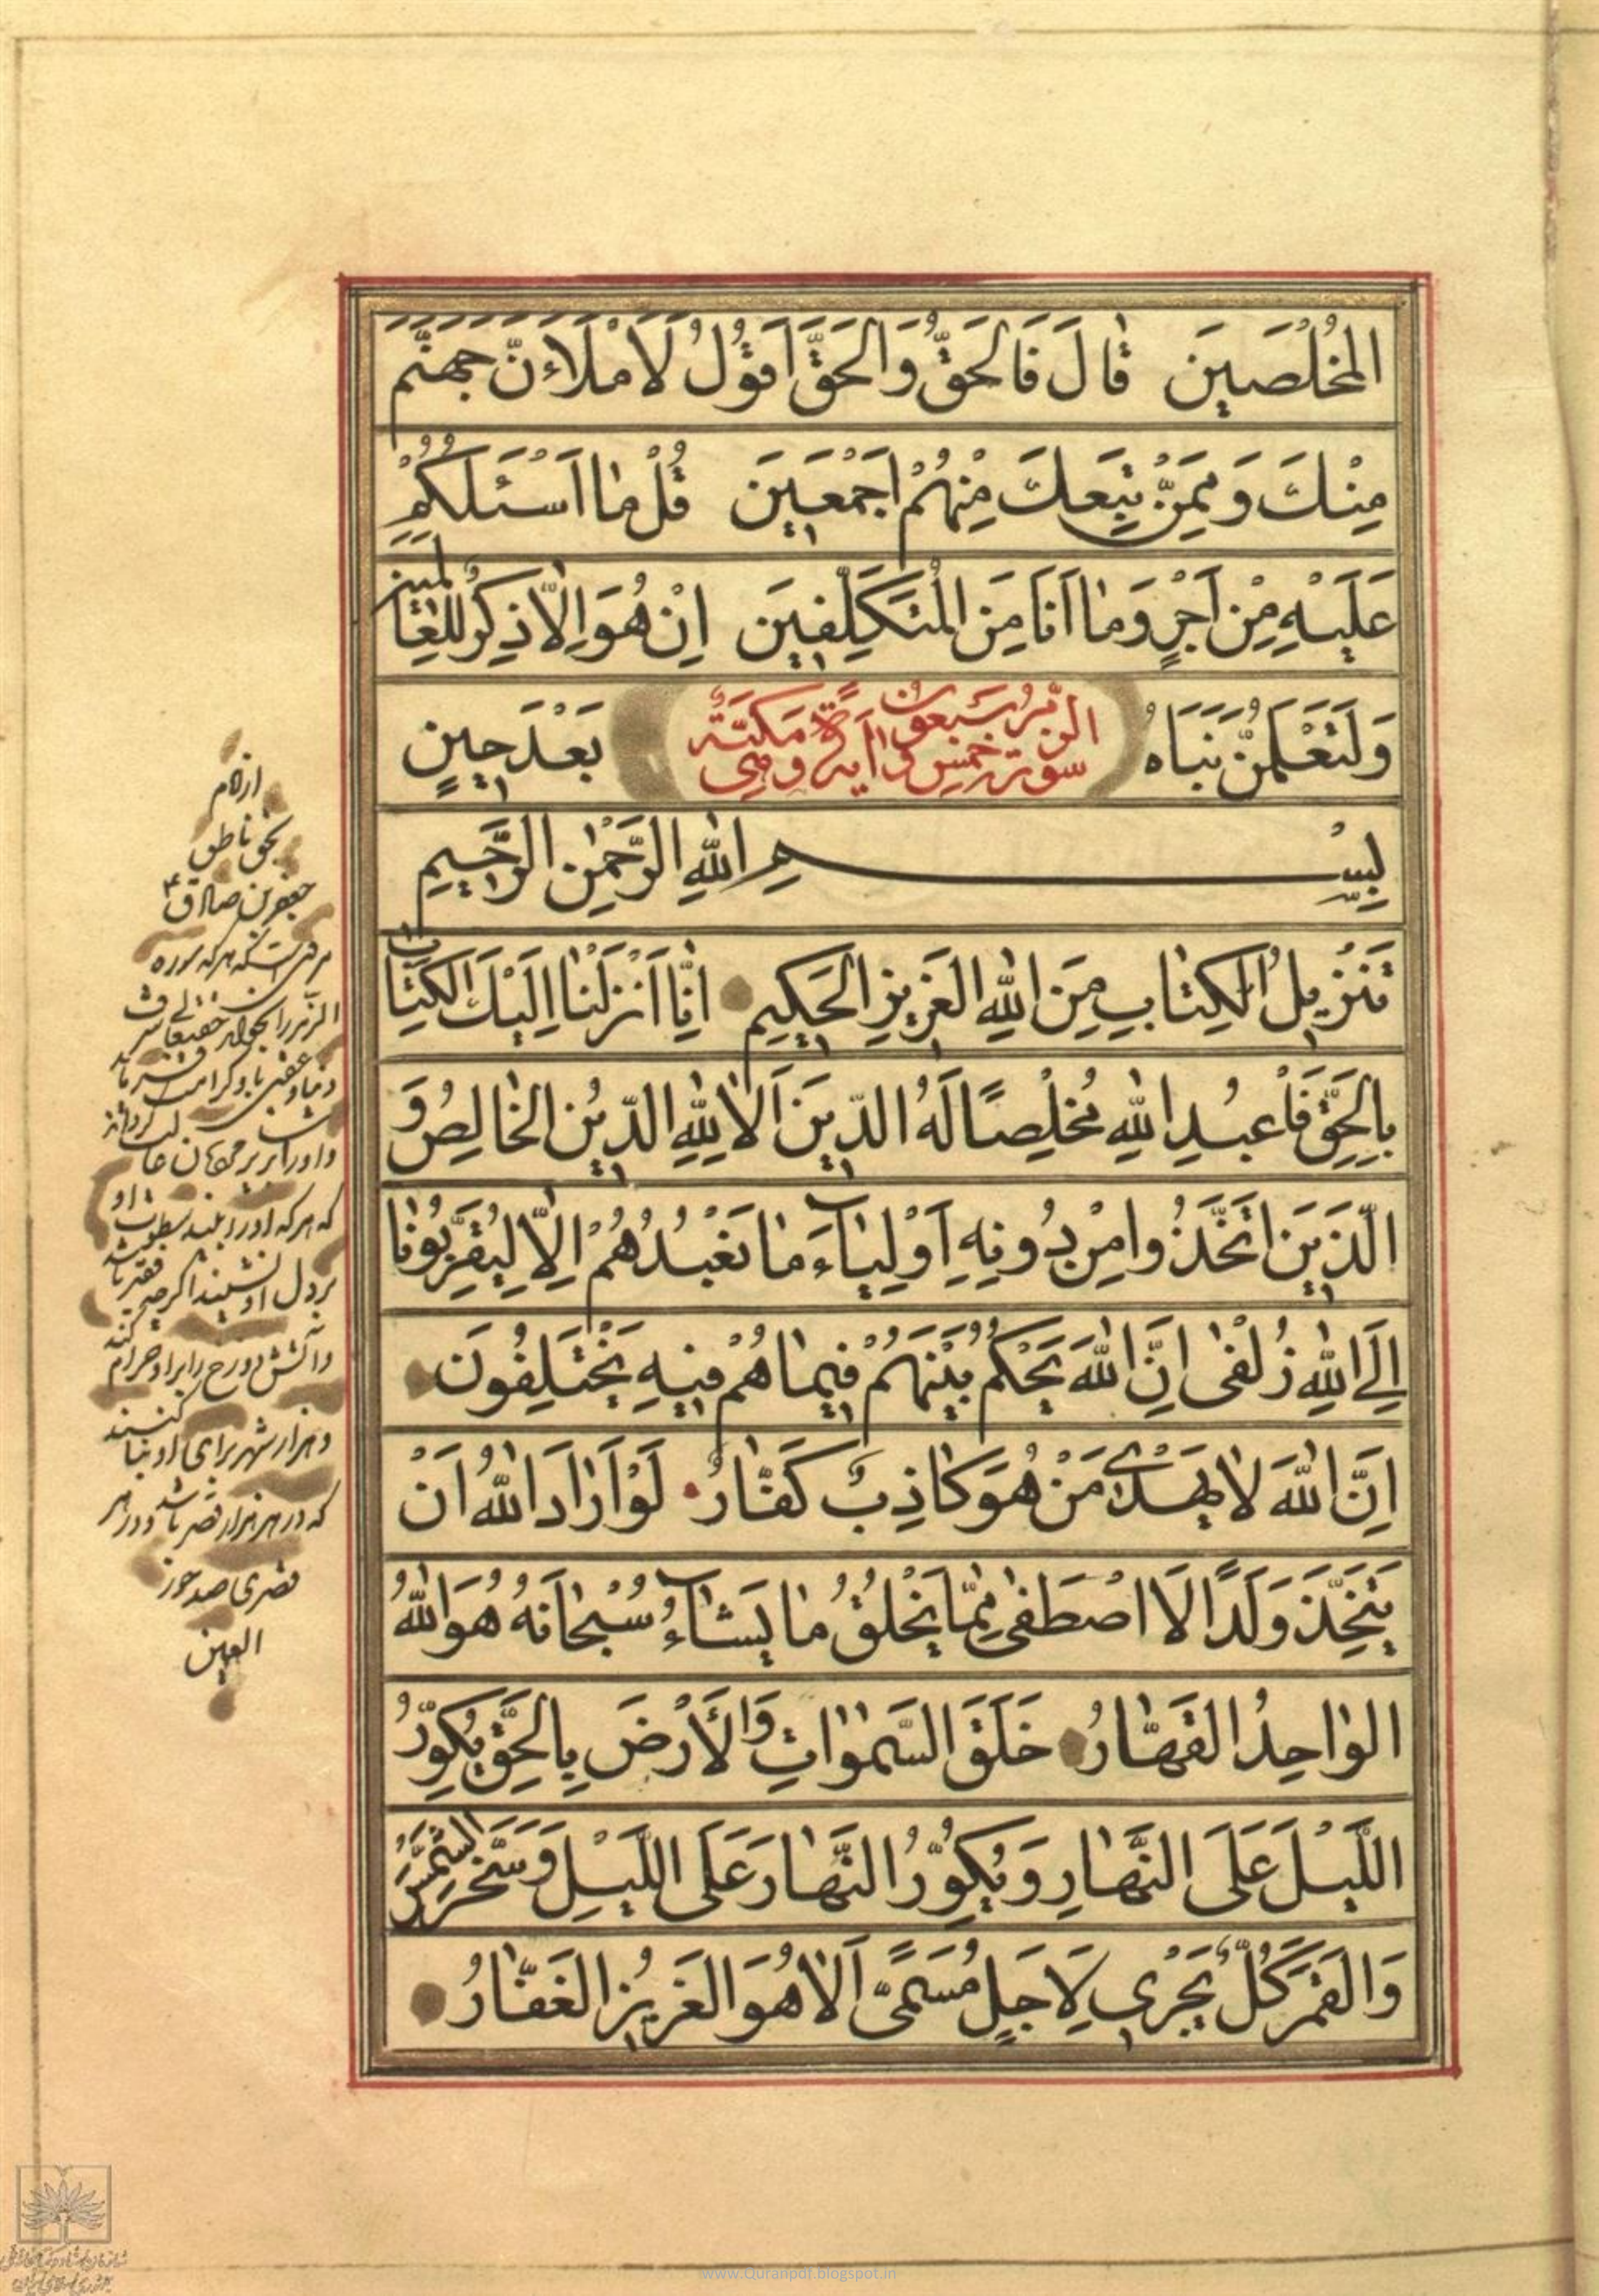 المُخْلَصَينَ قٰالَ فَالْحَقُّ وَالْحَقَّ اَقُولُ لَاَمْلَاَءنَّ جَهَنَّمَ
مِنْكَ وَمِمَّنْ تَبِعَكَ مِنْهُمْ اَجْمَعَينَ قُلْ مٰا اَسْئَلُكُمْ
عَلَيْهِ مِنْ اَجْرٍ وَمٰا اَنَا مِنَ الْمُتَكَلِّفينَ اِنْ هُوَ اِلّٰا ذِكْرٌ لِلْعٰالَمينَ
وَلَتَعْلَمُنَّ نَبَاَهُ بَعْدَ حينٍ
سورة الزمر سبعون و خمس آية و هي مكية
بِسْمِ اللّٰهِ الرَّحْمٰنِ الرَّحيمِ
تَنْزيلُ الْكِتٰابِ مِنَ اللّٰهِ الْعَزيزِ الْحَكيمِ اِنّٰا اَنْزَلْنٰا اِلَيْكَ الْكِتٰابَ
بِالْحَقِّ فَاعْبُدِ اللّٰهَ مُخْلِصًا لَهُ الدّينَ اَلٰا لِلّٰهِ الدّينُ الْخٰالِصُ وَ
الَّذينَ اتَّخَذُوا مِنْ دُونِهِ اَوْلِيٰاءَ مٰا نَعْبُدُهُمْ اِلّٰا لِيُقَرِّبُونٰا
اِلَى اللّٰهِ زُلْفٰى اِنَّ اللّٰهَ يَحْكُمُ بَيْنَهُمْ فيمٰا هُمْ فيهِ يَخْتَلِفُونَ
اِنَّ اللّٰهَ لٰا يَهْدى مَنْ هُوَ كٰاذِبٌ كَفّٰارٌ لَوْ اَرٰادَ اللّٰهُ اَنْ
يَتَّخِذَ وَلَدًا لَا اصْطَفٰى مِمّٰا يَخْلُقُ مٰا يَشٰاءُ سُبْحٰانَهُ هُوَ اللّٰهُ
الْوٰاحِدُ الْقَهّٰارُ خَلَقَ السَّمٰوٰاتِ وَالْاَرْضَ بِالْحَقِّ يُكَوِّرُ
اللَّيْلَ عَلَى النَّهٰارِ وَيُكَوِّرُ النَّهٰارَ عَلَى اللَّيْلِ وَسَخَّرَ الشَّمْسَ
وَالْقَمَرَ كُلٌّ يَجْرى لِاَجَلٍ مُسَمًّى اَلٰا هُوَ الْعَزيزُ الْغَفّٰارُ
از امام
بحق ناطق
جعفر بن صادق ع
مرویست که هر که سوره
الزمر را بخواند حقتعالی شرف
دنیا و عقبی با و کرامت فرماید
و او را بر بر جهان غالب گرداند
که هر که او را بیند
بر دل او نشیند اگرچه فقیر باشد
و آتش دوزخ را بر او حرام کند
و هزار شهر برای او بنا کنند
که در هر هزار قصر باشد و در هر
قصری صد حور
العین
www.Quranpdf.blogspot.in